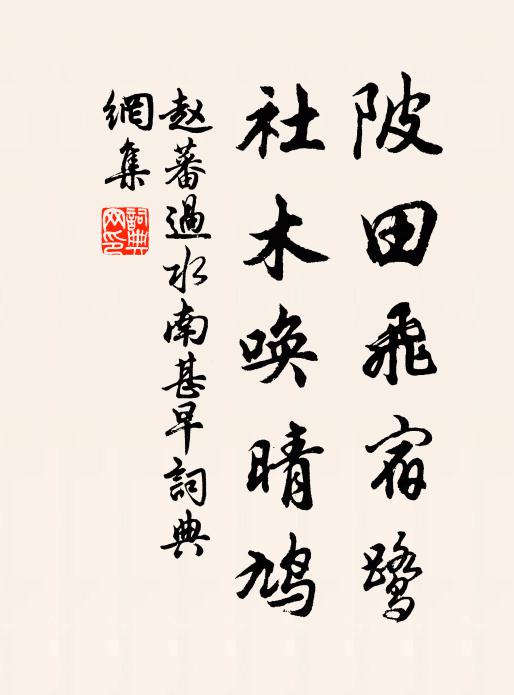 陂田飛宿鷺
社木喚晴鳩
赵蕃過水南甚早詞典
網集
詞典网印